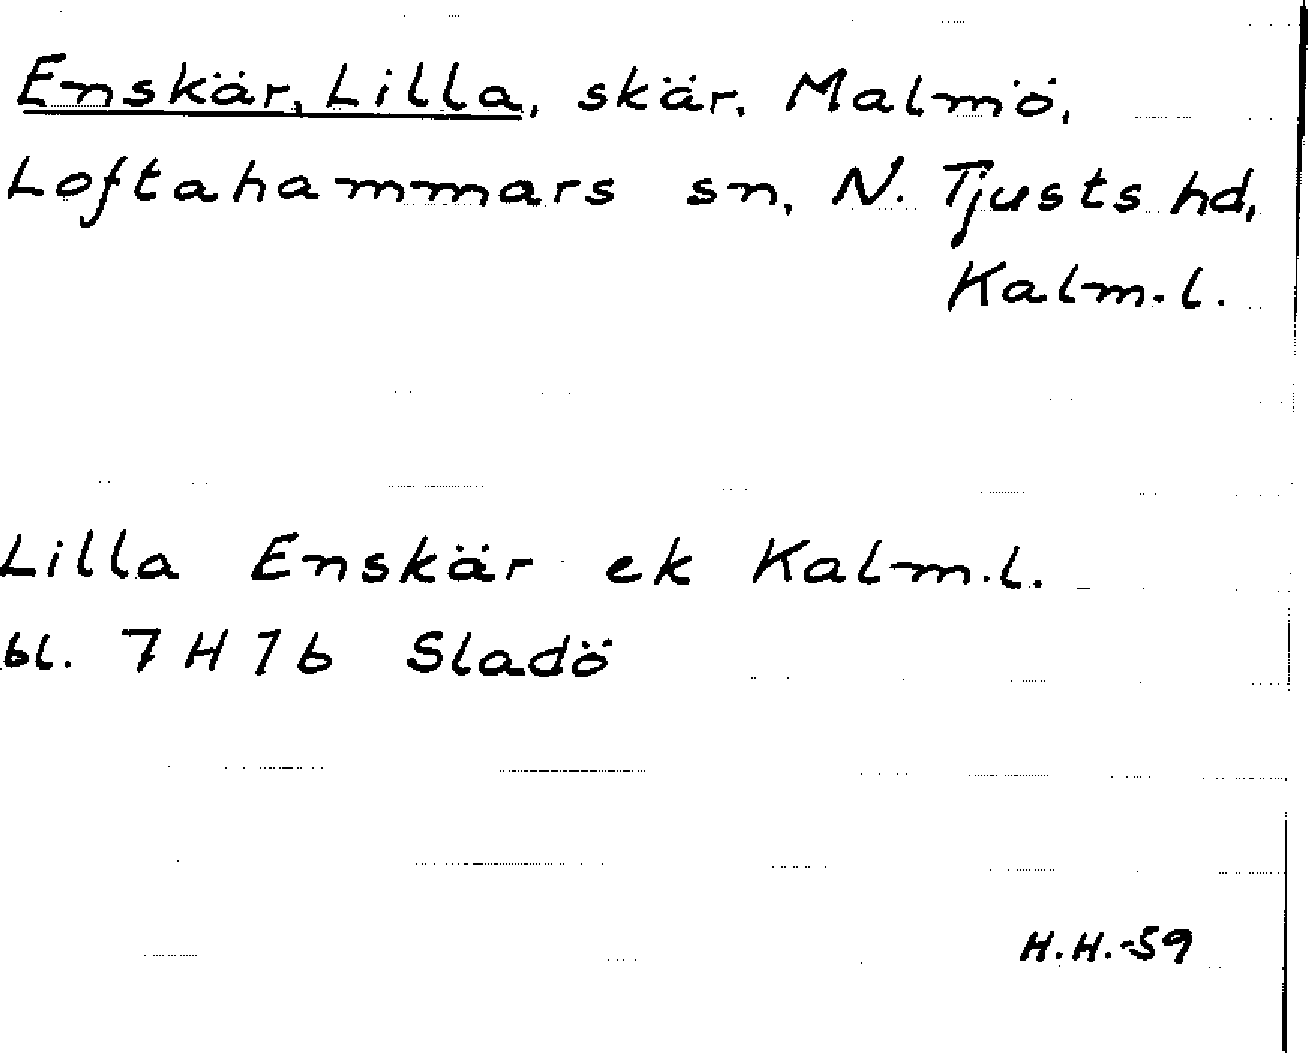 Enskär, Lilla, skär, Malmö,
Loftahammars sn, N. Tjusts hd,
Kalm.l.
Lilla Enskär ek Kalm.l.
bl. 7H7b Sladö
H.H.-59